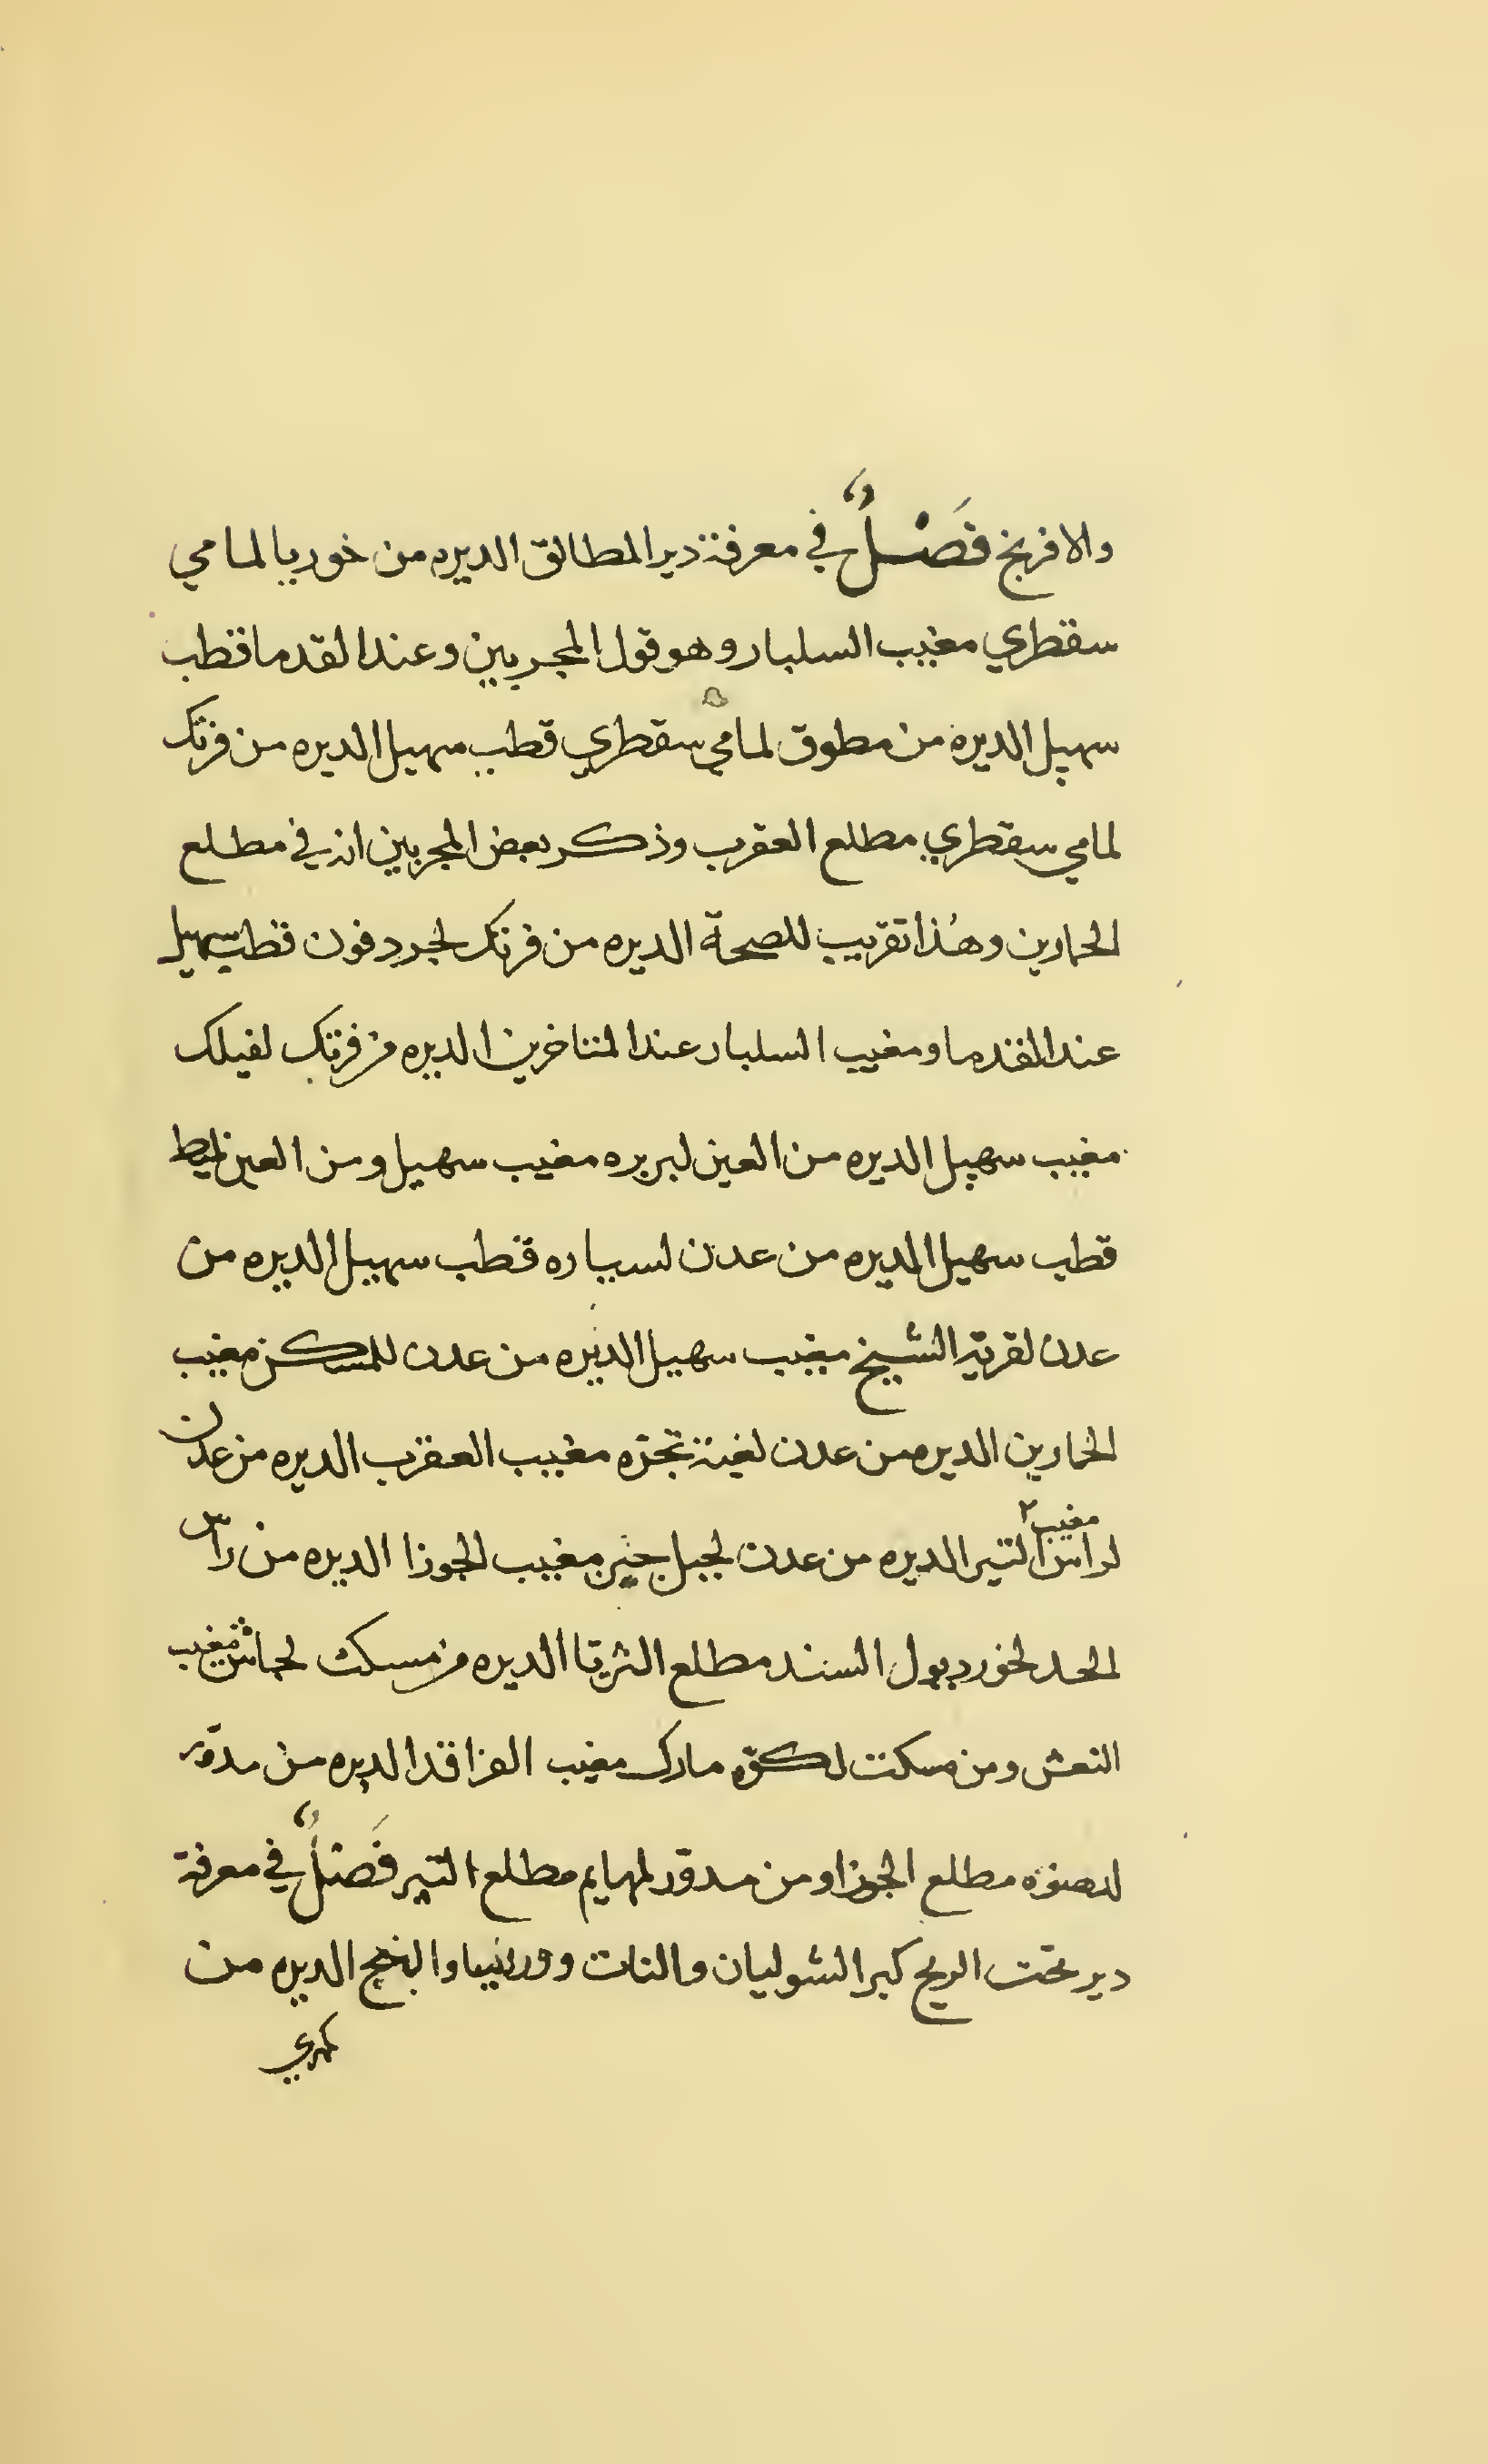 والافرنج فَصْلٌ في معرفة دير المطالق الديره من خوريا لمامي
سقطري مغيب السلبار وهو قول المجربين وعند القدما قطب
سهيل الديره من مطوق لمامي سقطري قطب سهيل الديره من فرتك
لمامي سقطري مطلع العقرب وذكر بعض المجربين انه في مطلع
الحمارين وهُذا تقريب للصحة الديره من فرتك لجردفون قطب سهيل
عند القدما ومغيب السلبار عند المتاخرين الديره من فرتك لفيلك
مغيب سهيل الديره من العين لبربره مغيب سهيل ومن العين لميط
قطب سهيل الديره من عدن لسياره قطب سهيل الديره من
عدن لقرية الشيخ مغيب سهيل الديره من عدن للمسكن مغيب
الحمارين الديره من عدن لغبة تجره مغيب العقرب الديره من عدن
لراس مغيب٢ التير الديره من عدن لجبل جين مغيب الجوزا الديره من راس
الحد لخور ديول السند مطلع الثريا الديره من مسكت لجاش مغيب
النعش ومن مسكت لكوّه مارك مغيب الفراقد الديره من مدوّر
لدصنوره مطلع الجوزا ومن مدوّر لمهايم مطلع التير فَصْلٌ في معرفة
دير تحت الريح كبر الشوليان والنات والبنج الديره من